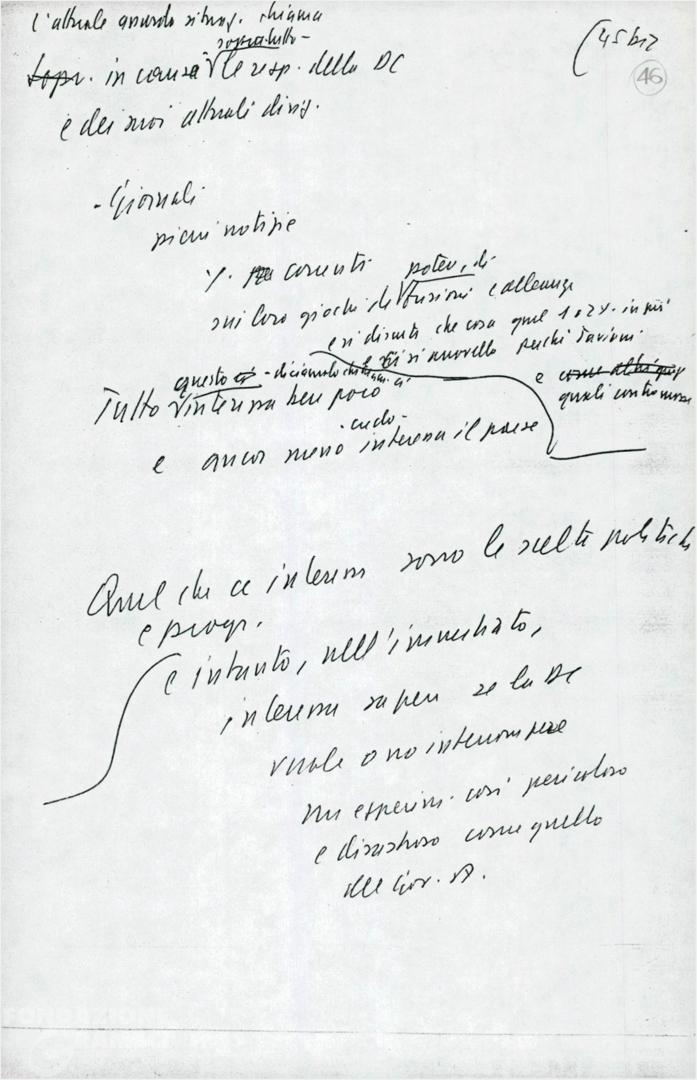 L'attuale assurda situaz. chiama
(45 bis
46
soprattutto -
Sopr. in causa le resp. della DC
e dei suoi attuali dirig.
- Giornali
pieni notizie
correnti poter, di
sui loro giochi di fusioni e alleanze
e si discute che cosa vuole 1 o 2% in più
questo - diciamolo
e come altri
Tutto interessa ben poco
quali contromosse
- credo -
e ancor meno interessa il paese
Quel che ci interessa sono le scelte politiche
e progr.
e intanto, nell'immediato,
interessa sapere se la DC
vuole o no interrompere
un esperim. così pericoloso
e disastroso come quello
del Gov. A.